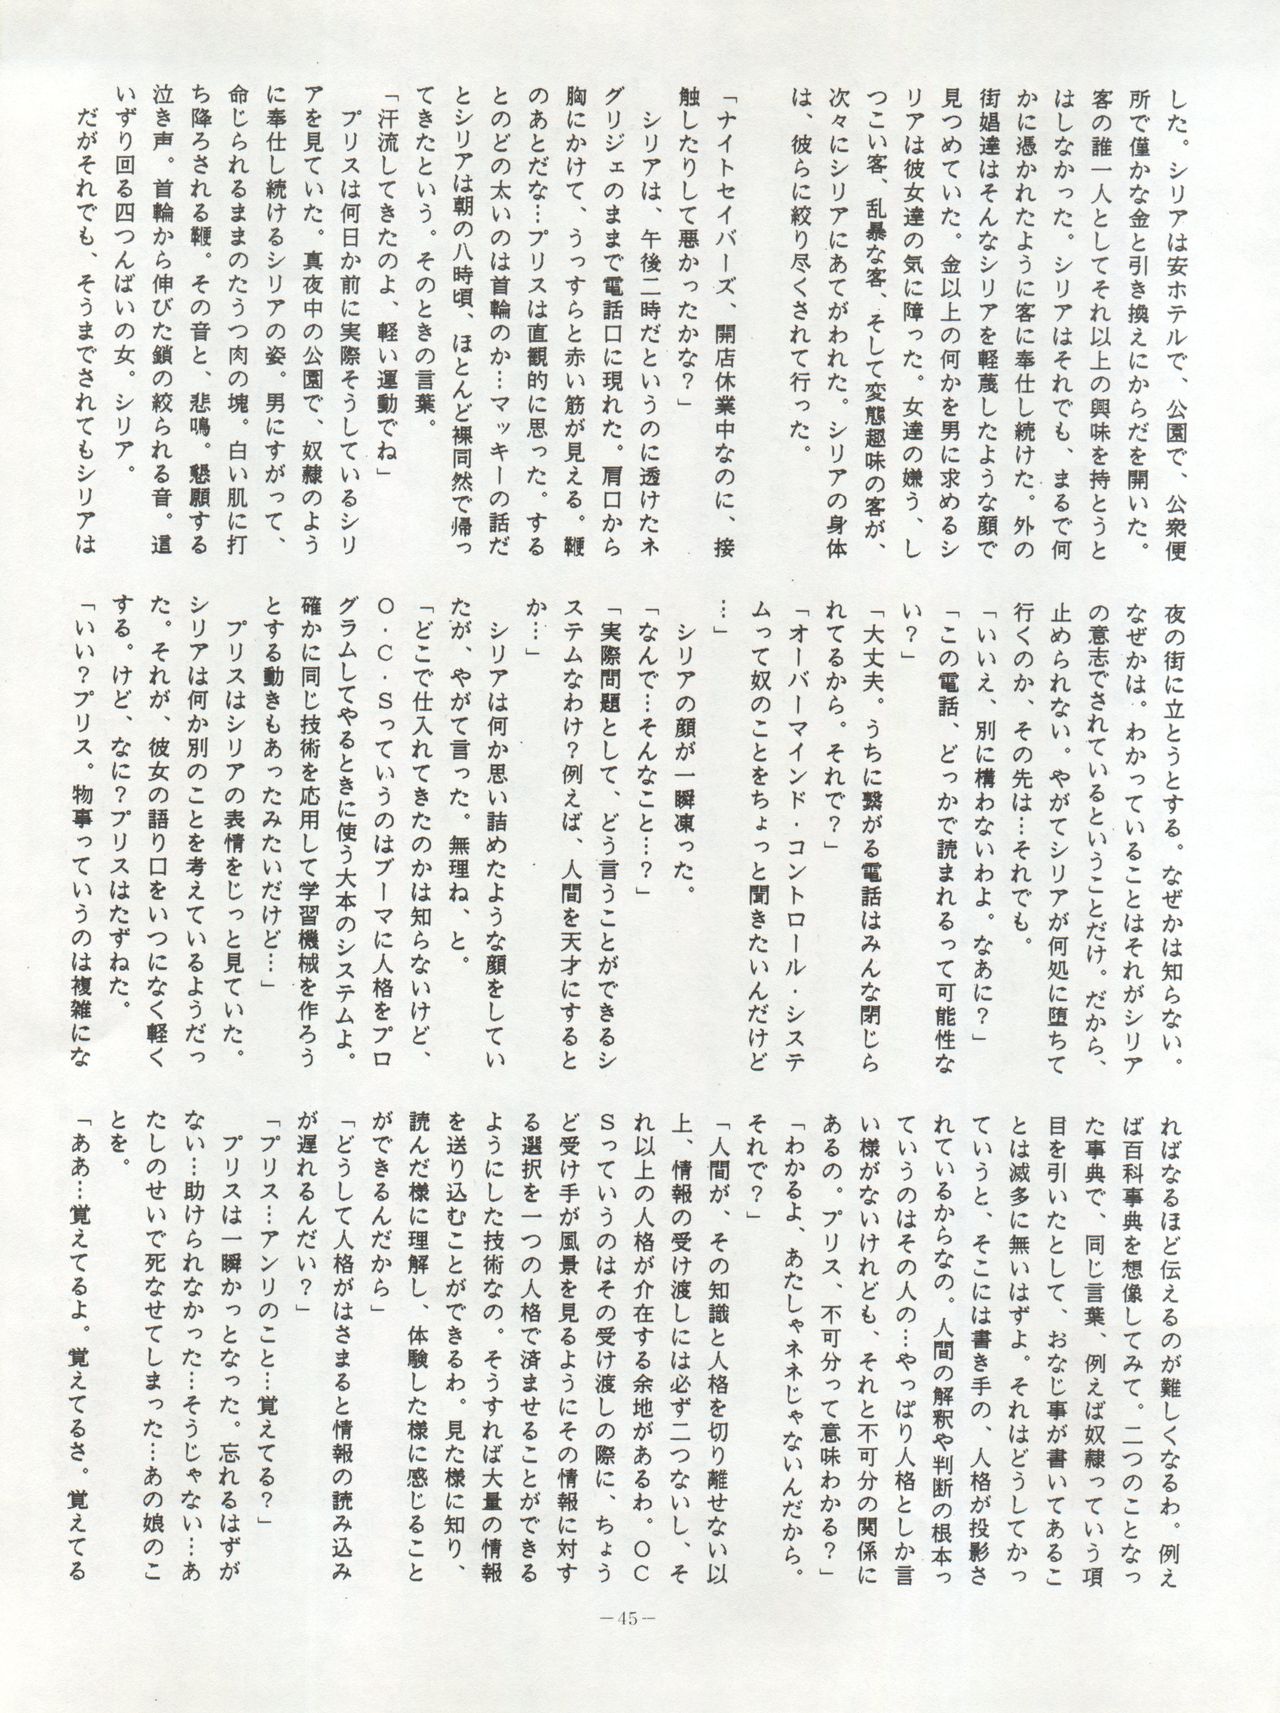 した。シリアは安ホテルで、公園で、公衆便
所で僅かな金と引き換えにからだを開いた。
客の誰一人としてそれ以上の興味を持とうと
はしなかった。シリアはそれでも、まるで何
かに憑かれたように客に奉仕し続けた。外の
街娼達はそんなシリアを軽蔑したような顔で
見つめていた。金以上の何かを男に求めるシ
リアは彼女達の気に障った。女達の嫌う、し
つこい客、乱暴な客、そして変態趣味の客が、
次々にシリアにあてがわれた。シリアの身体
は、彼らに絞り尽くされて行った。
「ナイトセイバーズ、開店休業中なのに、接
触したりして悪かったかな？」
シリアは、午後二時だというのに透けたネ
グリジェのままで電話口に現れた。肩口から
胸にかけて、うっすらと赤い筋が見える。鞭
のあとだな…プリスは直観的に思った。する
とのどの太いのは首輪のか…マッキーの話だ
とシリアは朝の八時頃、ほとんど裸同然で帰っ
てきたという。そのときの言葉。
「汗流してきたのよ、軽い運動でね」
プリスは何日か前に実際そうしているシリ
アを見ていた。真夜中の公園で、奴隷のよう
に奉仕し続けるシリアの姿。男にすがって、
命じられるままのたうつ肉の塊。白い肌に打
ち降ろされる鞭。その音と、悲鳴。懇願する
泣き声。首輪から伸びた鎖の絞られる音。這
いずり回る四つんばいの女。シリア。
だがそれでも、そうまでされてもシリアは
夜の街に立とうとする。なぜかは知らない。
なぜかは。わかっていることはそれがシリア
の意志でされているということだけ。だから、
止められない。やがてシリアが何処に堕ちて
行くのか、その先は…それでも。
「いいえ、別に構わないわよ。なあに？」
「この電話、どっかで読まれるって可能性な
い？」
「大丈夫。うちに繋がる電話はみんな閉じら
れてるから。それで？」
「オーバーマインド・コントロール・システ
ムって奴のことをちょっと聞きたいんだけど
…」
シリアの顔が一瞬凍った。
「なんで…そんなこと…？」
「実際問題として、どう言うことができるシ
ステムなわけ？例えば、人間を天才にすると
か…」
シリアは何か思い詰めたような顔をしてい
たが、やがて言った。無理ね、と。
「どこで仕入れてきたのかは知らないけど、
Ｏ・Ｃ・Ｓっていうのはブーマに人格をプロ
グラムしてやるときに使う大本のシステムよ。
確かに同じ技術を応用して学習機械を作ろう
とする動きもあったみたいだけど…」
プリスはシリアの表情をじっと見ていた。
シリアは何か別のことを考えているようだっ
た。それが、彼女の語り口をいつになく軽く
する。けど、なに？プリスはたずねた。
「いい？プリス。物事っていうのは複雑にな
ればなるほど伝えるのが難しくなるわ。例え
ば百科事典を想像してみて。二つのことなっ
た事典で、同じ言葉、例えば奴隷っていう項
目を引いたとして、おなじ事が書いてあるこ
とは滅多に無いはずよ。それはどうしてかっ
ていうと、そこには書き手の、人格が投影さ
れているからなの。人間の解釈や判断の根本っ
ていうのはその人の…やっぱり人格としか言
い様がないけれども、それと不可分の関係に
あるの。プリス、不可分って意味わかる？」
「わかるよ、あたしゃネネじゃないんだから。
それで？」
「人間が、その知識と人格を切り離せない以
上、情報の受け渡しには必ず二つないし、そ
れ以上の人格が介在する余地があるわ。ＯＣ
Ｓっていうのはその受け渡しの際に、ちょう
ど受け手が風景を見るようにその情報に対す
る選択を一つの人格で済ませることができる
ようにした技術なの。そうすれば大量の情報
を送り込むことができるわ。見た様に知り、
読んだ様に理解し、体験した様に感じること
ができるんだから」
「どうして人格がはさまると情報の読み込み
が遅れるんだい？」
「プリス…アンリのこと…覚えてる？」
プリスは一瞬かっとなった。忘れるはずが
ない…助けられなかった…そうじゃない…あ
たしのせいで死なせてしまった…あの娘のこ
とを。
「ああ…覚えてるよ。覚えてるさ。覚えてる
－45－